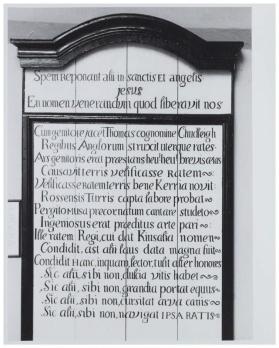 Spem Reponant alii in sanctis Et angelis
Jesus
En nomen venerandum quod liberavit nos
Cum genitore jacet Thomas cognomine Chudleigh
Regibus Anglorum struxit uterque rates
Ars genitoris erat præstans heu heu brevis ævis
Causavit terris velificasse ratem
Velificasse ratem terris bene Kerria novit
Rossensis Turris capta labore probat
Pergito musa precor natum cantare studeto
Ingeniosus erat præditus arte pari
Ille ratem Regi, cui dat Kinsalia nomen
Condidit, ast alii laus data magna fuit
Condidit Hanc, inquam, lector, tulit alter honores
Sic alii, sibi non, dulcia vitis habet
Sic alii, sibi non, grandia portat equus
Sic alii, sibi non, cursitat arva canis
Sic alii, sibi non, navigat IPSA RATIS